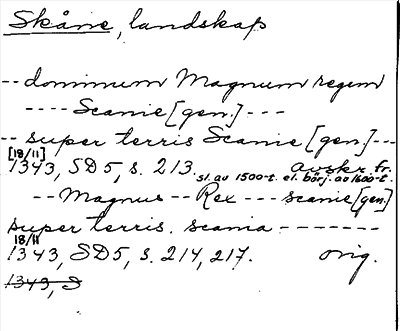 Skåne, landskap
-- dominum Magnum regem
---- Scanie [gen.] ---
-- super terris Scanie [gen.] ---
[18/11]
1343, SD5, s. 213. Avskr. fr.
sl. av 1500-t. el. börj. av 1600-t.
-- Magnus -- Rex --- scanie [gen]
super terris. scania -------
18/11
1343, SD5, s. 214, 217. orig.
1343, S